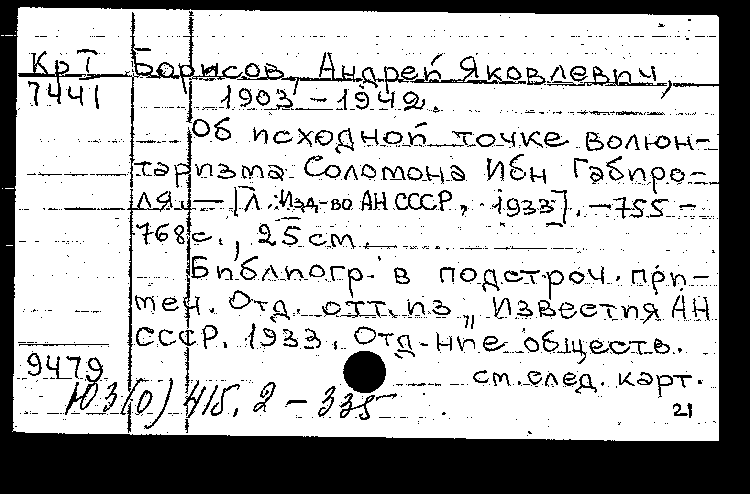 Кр I Борисов, Андрей Яковлевич,
7441 1903 – 1942.
Об исходной точке волюн-
таризма Соломона Ибн Габиро-
ля. — [Л. Изд-во АН СССР, 1933]. — 755 –
768 с., 25 см.
Библиогр. в подстроч. при-
меч. Отд. отт. из „Известия АН
СССР. 1933. Отд-ние обществ.
9479
см. след. карт.
Ю3(0) 415.2 – 335
21